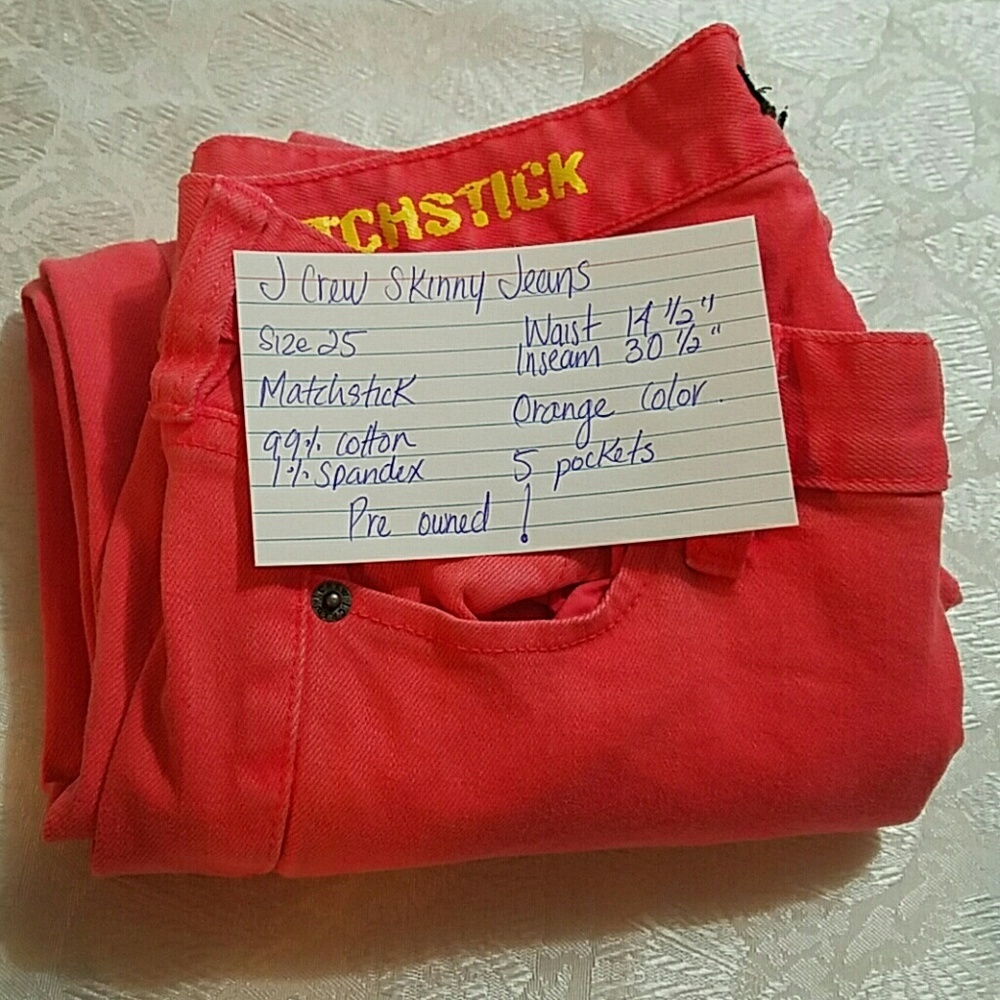 TCHSTICK
J Crew Skinny Jeans
Size 25
Matchstick
99% cotton
1% Spandex
Waist 14 1/2"
Inseam 30 1/2"
Orange Color.
5 pockets
Pre owned !